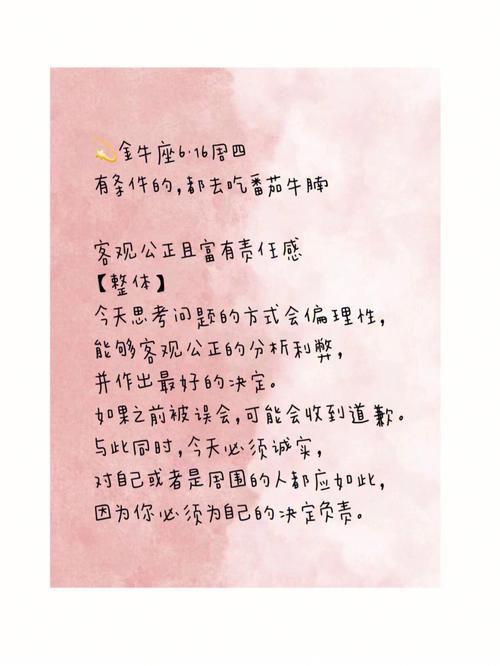 💫金牛座6·16周四
有条件的,都去吃番茄牛腩
客观公正且富有责任感
【整体】
今天思考问题的方式会偏理性,
能够客观公正的分析利弊,
并作出最好的决定。
如果之前被误会,可能会收到道歉。
与此同时,今天必须诚实,
对自己或者是周围的人都应如此,
因为你必须为自己的决定负责。